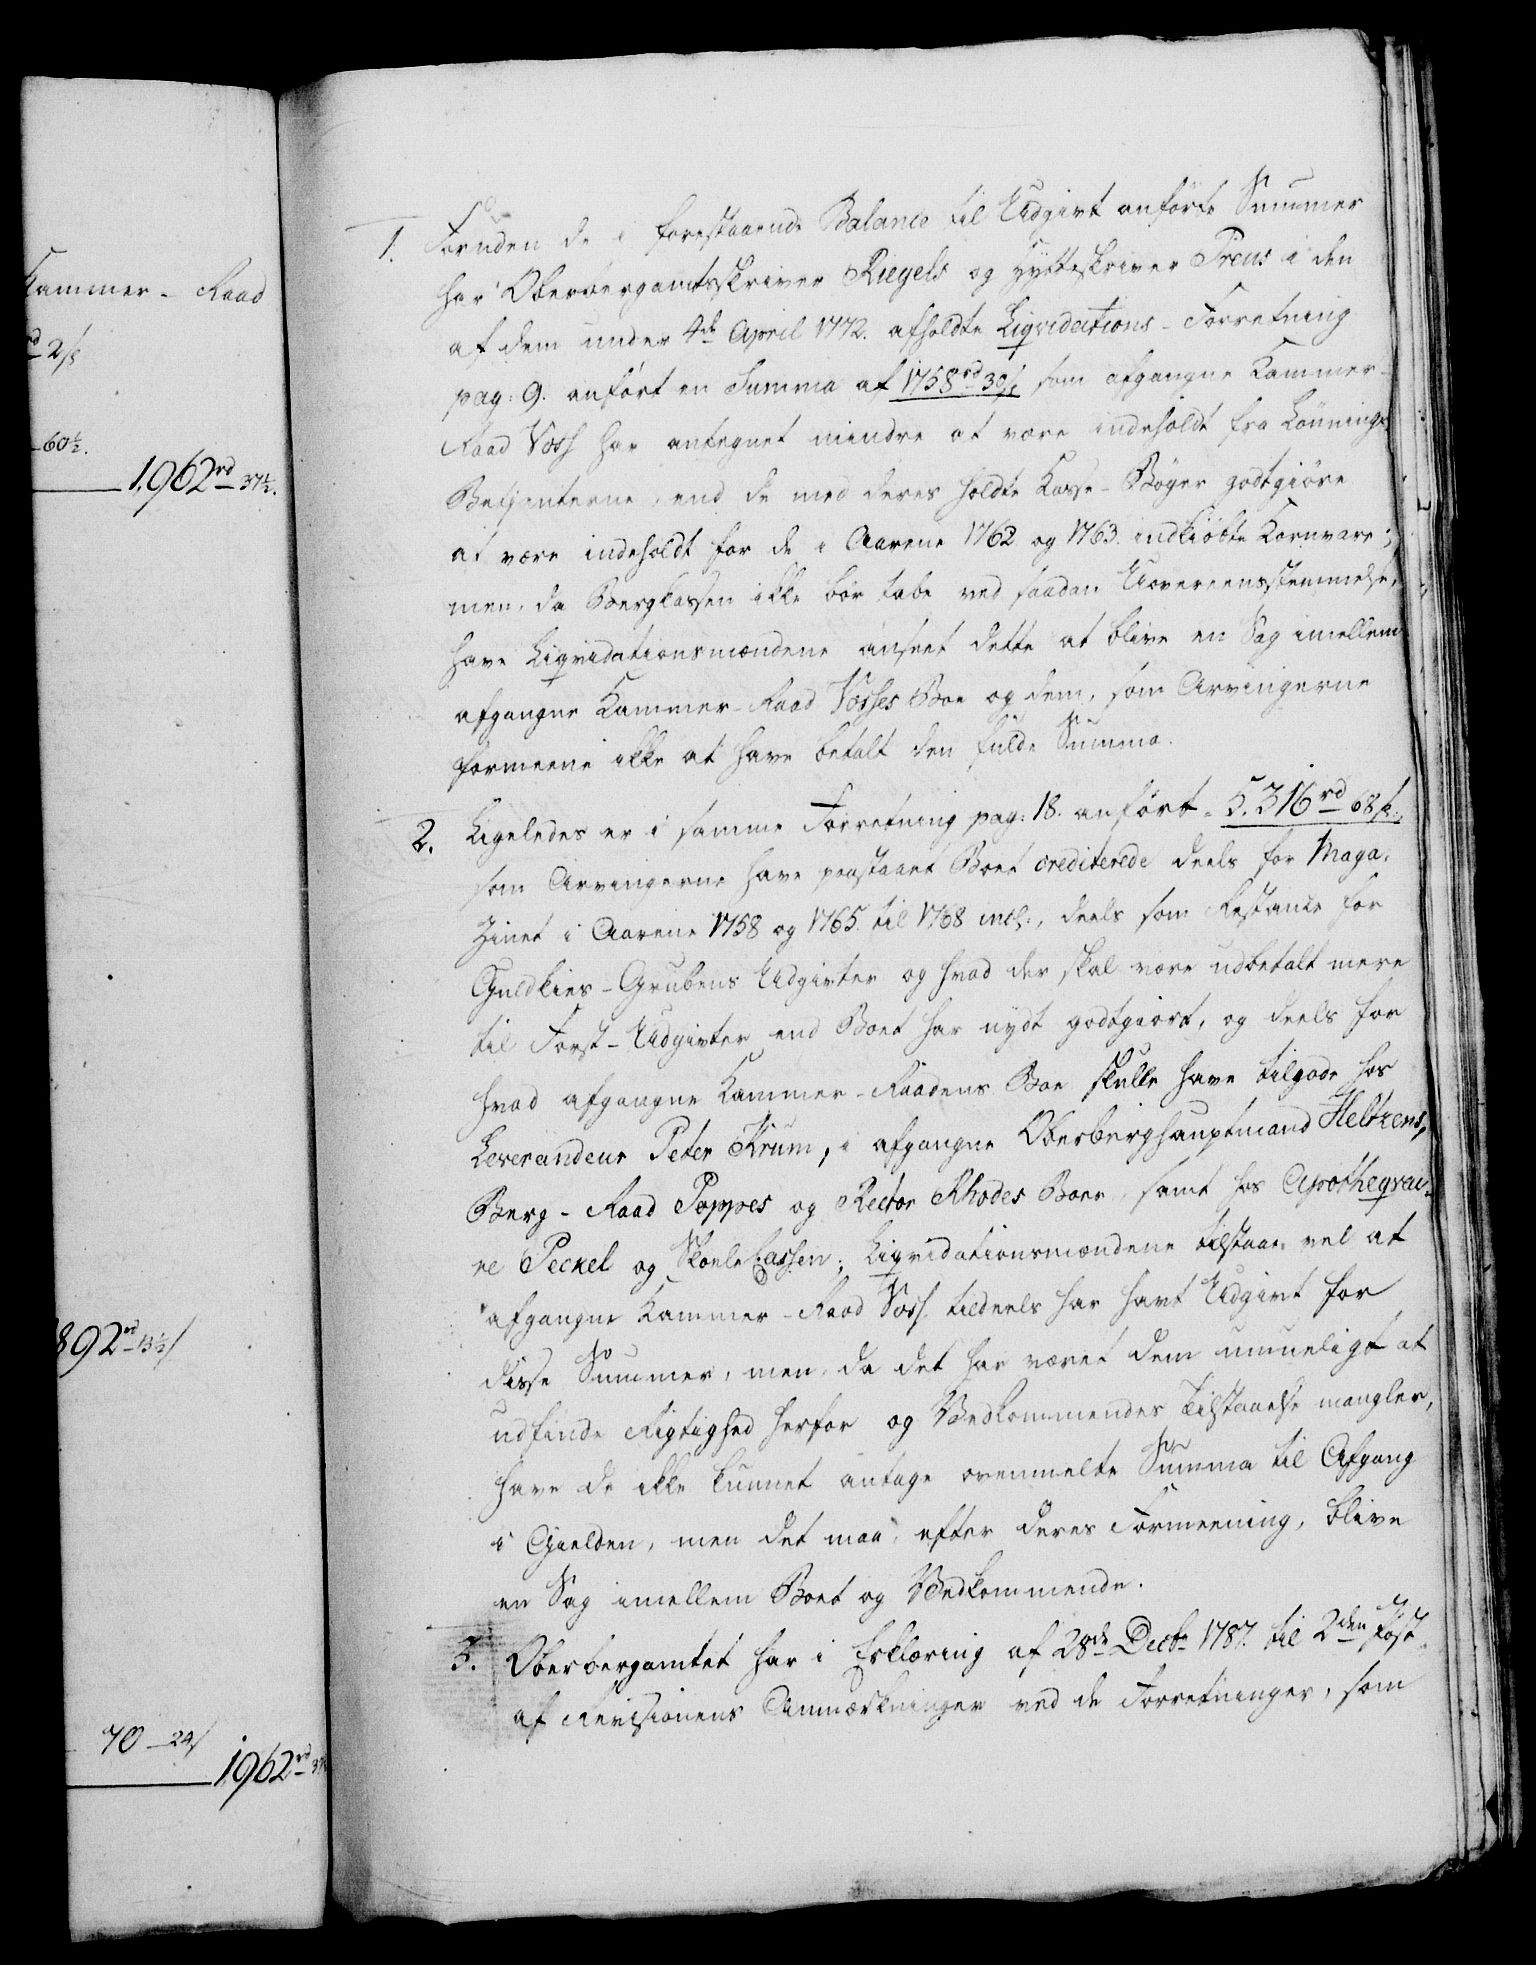 Kammer-Raad
rd 2 s
60½.
1962 rd 37½.
892 rd 13½ s
70 - 24 s
1962 rd 37½
1. Foruden de i forestaaende Balance til Udgivt anførte Summer
har Oberbergamtsskriver Riegels og Hytteskriver Preus i den
af dem under 4de April 1772. afholdte Liqvidations-Forretning
pag: 9. anført en Summa af 1758 rd 30 s, som afgangne Kammer-
Raad Voss har antegnet mindre at være indeholdt fra Lønnings
Betjenterne, end de med deres holdte Casse-Bøger godtgiøre
at være indeholdt for de i Aarene 1762 og 1763. indkiøbte Kornvare;
men, da Bergkassen ikke bør tabe ved saadan Uovereensstemmelse,
have Liqvidationsmændene anseet dette at blive en Sag imellem
afgangne Kammer-Raad Vosses Boe og dem, som Arvingerne
formeene ikke at have betalt den fulde Summa.
2. Ligeledes er i samme Forretning pag: 18. anført - 5.316 rd 68 s.,
som Arvingerne have paastaaet Boet crediterede deels for Maga-
zinet i Aarene 1758 og 1765. til 1768 incl:, deels som Restance for
Guldkies-Grubens Udgivter og hvad der skal være udbetalt mere
til Forst-Udgivter end Boet har nydt godtgiort, og deels for
hvad afgangne Kammer-Raadens Boe skulle have tilgode hos
Leverandeur Peter Krum, i afgangne Oberberghauptmand Heltzens,
Berg-Raad Poppes og Rector Rhodes Boer, samt hos Apotheqvai-
re Peckel og Skoele Cassen; Liqvidationsmændene tilstaae vel at
afgangne Kammer-Raad Voss tildeels har havt Udgivt for
disse Summer, men, da det har været dem umueligt at
udfinde Rigtighed herfor og Vedkommendes Tilstaaelse mangler,
have de ikke kunnet antage ovenmelte Summa til Afgang
i Gielden, men det maa, efter deres Formeening, blive
en Sag imellem Boet og Vedkommende.
3. Oberbergamtet har i Erklæring af 28de Decbr 1787. til 2den Post
af Revisionens Anmærkninger ved de Forretninger, som